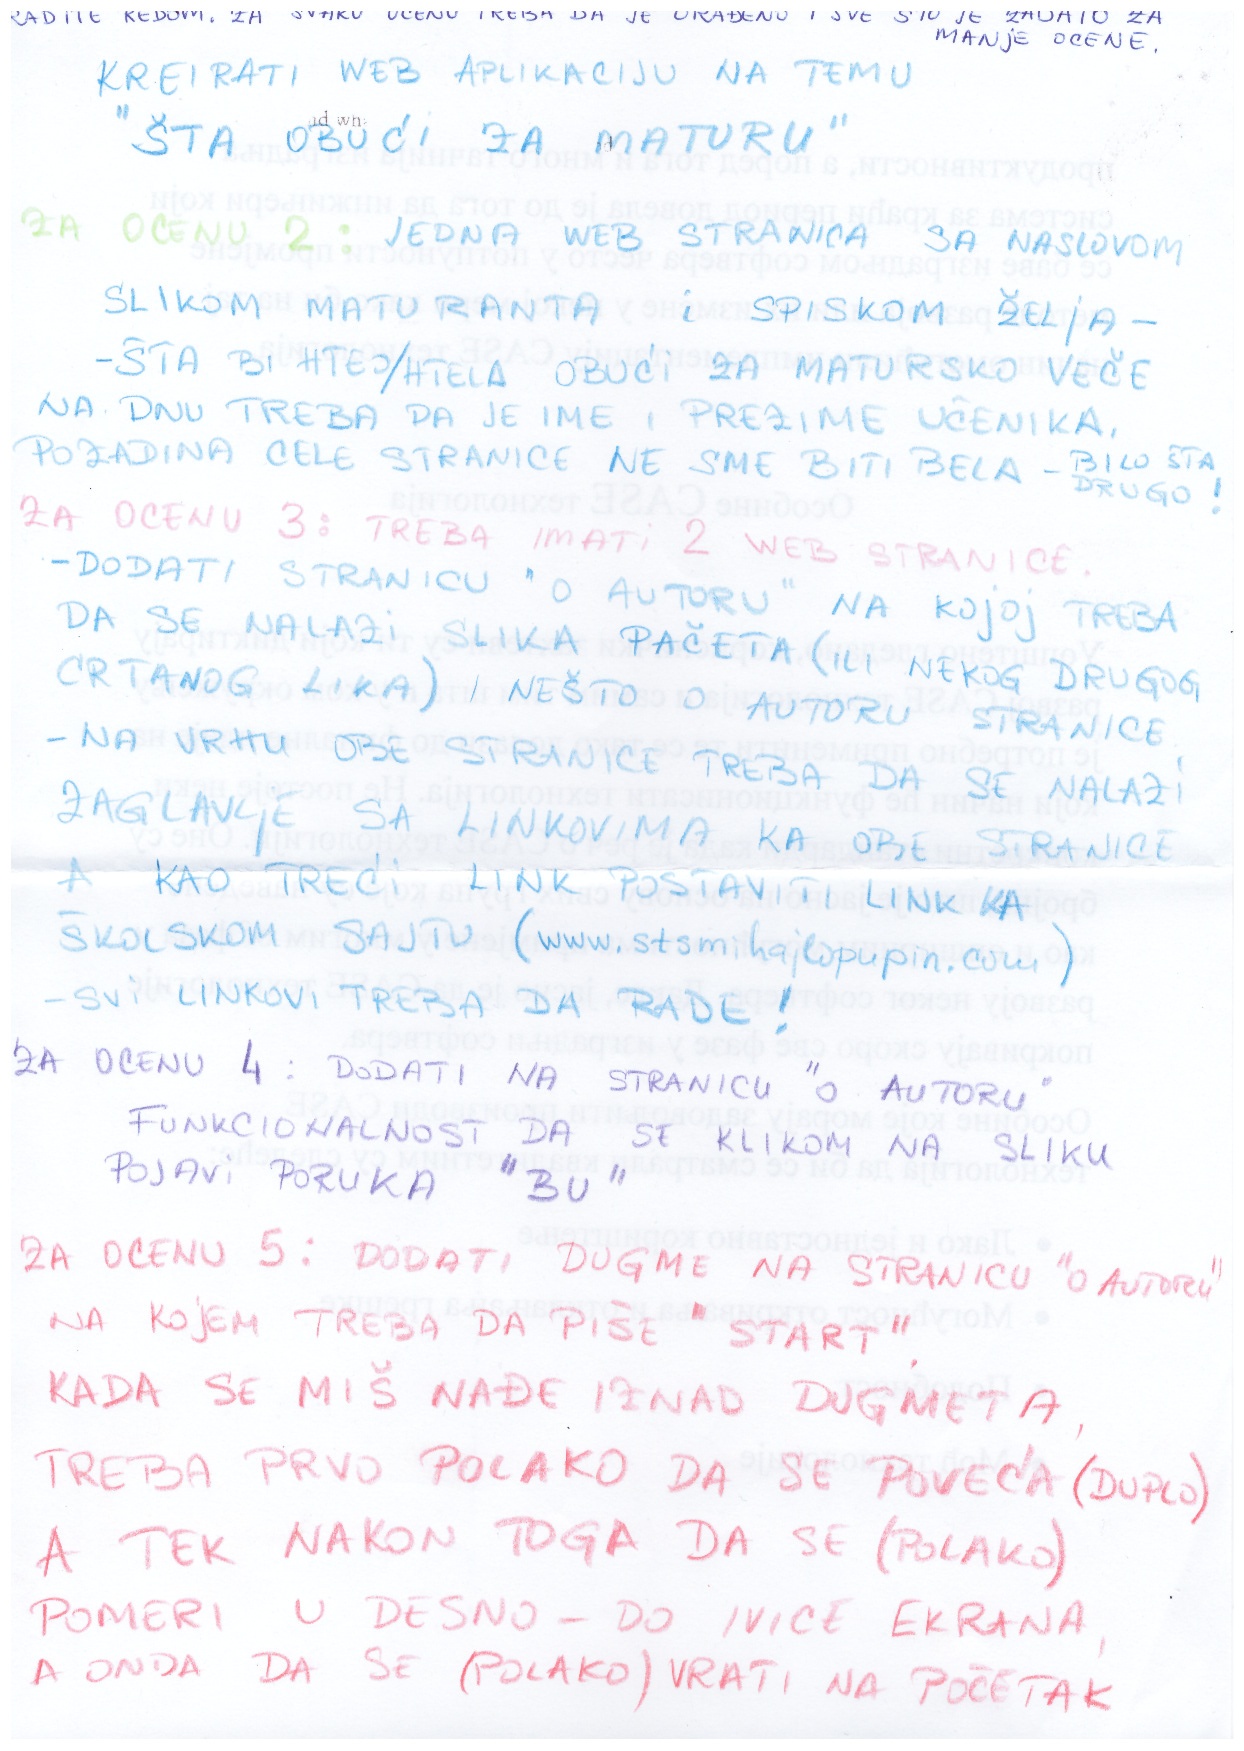 RADITE REDOM. ZA SVAKU OCENU TREBA DA JE URAĐENO I SVE ŠTO JE ZADATO ZA
MANJE OCENE.
KREIRATI WEB APLIKACIJU NA TEMU
"ŠTA OBUĆI ZA MATURU"
ZA OCENU 2: JEDNA WEB STRANICA SA NASLOVOM
SLIKOM MATURANTA I SPISKOM ŽELJA -
- ŠTA BI HTEO/HTELA OBUĆI ZA MATURSKO VEČE
NA DNU TREBA DA JE IME I PREZIME UČENIKA.
POZADINA CELE STRANICE NE SME BITI BELA - BILO ŠTA
DRUGO!
ZA OCENU 3: TREBA IMATI 2 WEB STRANICE.
- DODATI STRANICU "O AUTORU" NA KOJOJ TREBA
DA SE NALAZI SLIKA PAČETA (ILI NEKOG DRUGOG
CRTANOG LIKA) I NEŠTO O AUTORU STRANICE
- NA VRHU OBE STRANICE TREBA DA SE NALAZI
ZAGLAVLJE SA LINKOVIMA KA OBE STRANICE
A KAO TREĆI LINK POSTAVITI LINK KA
ŠKOLSKOM SAJTU (www.stsmihajlopupin.com)
- SVI LINKOVI TREBA DA RADE!
ZA OCENU 4: DODATI NA STRANICU "O AUTORU"
FUNKCIONALNOST DA SE KLIKOM NA SLIKU
POJAVI PORUKA "BU"
ZA OCENU 5: DODATI DUGME NA STRANICU "O AUTORU"
NA KOJEM TREBA DA PIŠE "START".
KADA SE MIŠ NAĐE IZNAD DUGMETA,
TREBA PRVO POLAKO DA SE POVEĆA (DUPLO)
A TEK NAKON TOGA DA SE (POLAKO)
POMERI U DESNO - DO IVICE EKRANA,
A ONDA DA SE (POLAKO) VRATI NA POČETAK